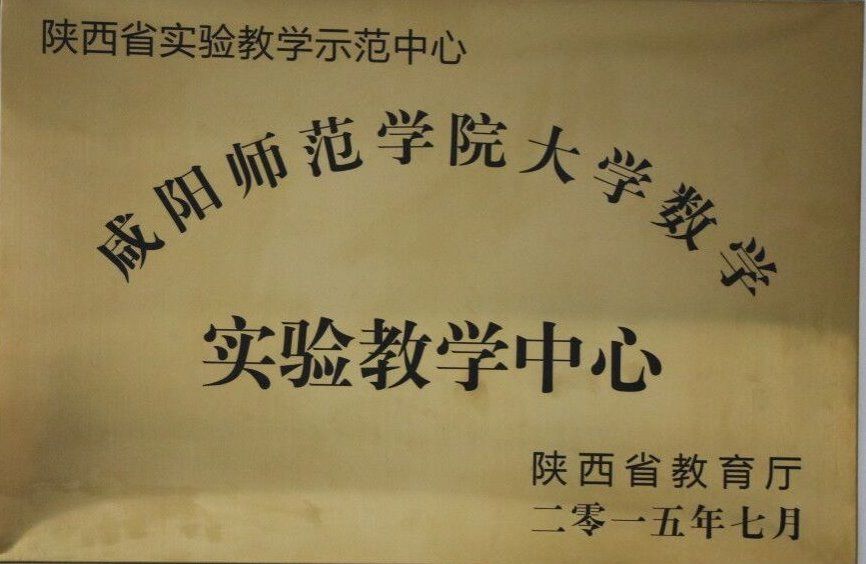 陕西省实验教学示范中心
咸阳师范学院大学数学
实验教学中心
陕西省教育厅
二零一五年七月